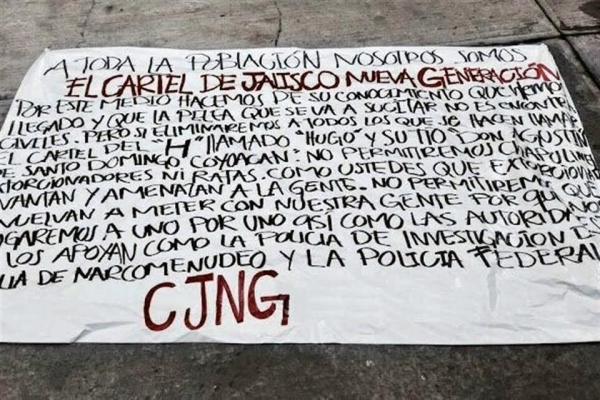 A TODA LA POBLACIÓN NOSOTROS SOMOS
EL CARTEL DE JALISCO NUEVA GENERACIÓN
POR ESTE MEDIO HACEMOS DE SU CONOCIMIENTO QUE HEMOS
LLEGADO Y QUE LA PELEA QUE SE VA A SUCITAR NO ES ENCONTRA
CIVILES. PERO SI ELIMINAREMOS A TODOS LOS QUE SE HACEN LLAMAR
EL CARTEL DEL "H" LLAMADO "HUGO" Y SU TIO "DON AGUSTIN
DE SANTO DOMINGO, COYOACAN: NO PERMITIREMOS CHAPULINE
EXTORCIONADORES NI RATAS. COMO USTEDES QUE EXTORCIONA
VANTAN Y AMENATAN A LA GENTE. NO PERMITIREMOS QUE
VUELVAN A METER CON NUESTRA GENTE POR QUE NOS
GAREMOS A UNO POR UNO ASÍ COMO LAS AUTORIDADES
LOS APOYAN COMO LA POLICIA DE INVESTIGACION DE
LIA DE NARCOMENUDEO Y LA POLICIA FEDERAL
CJNG